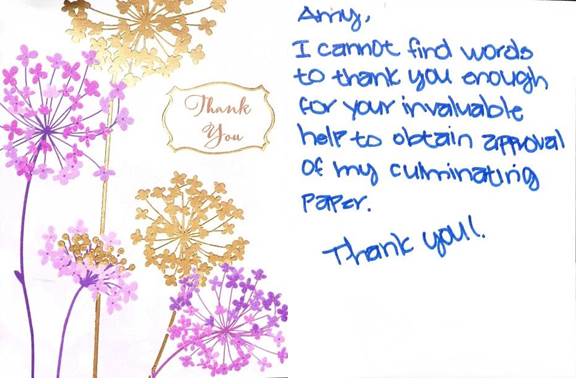 Thank
You
Amy,
I cannot find words
to thank you enough
for your invaluable
help to obtain approval
of my culminating
paper.
Thank you!